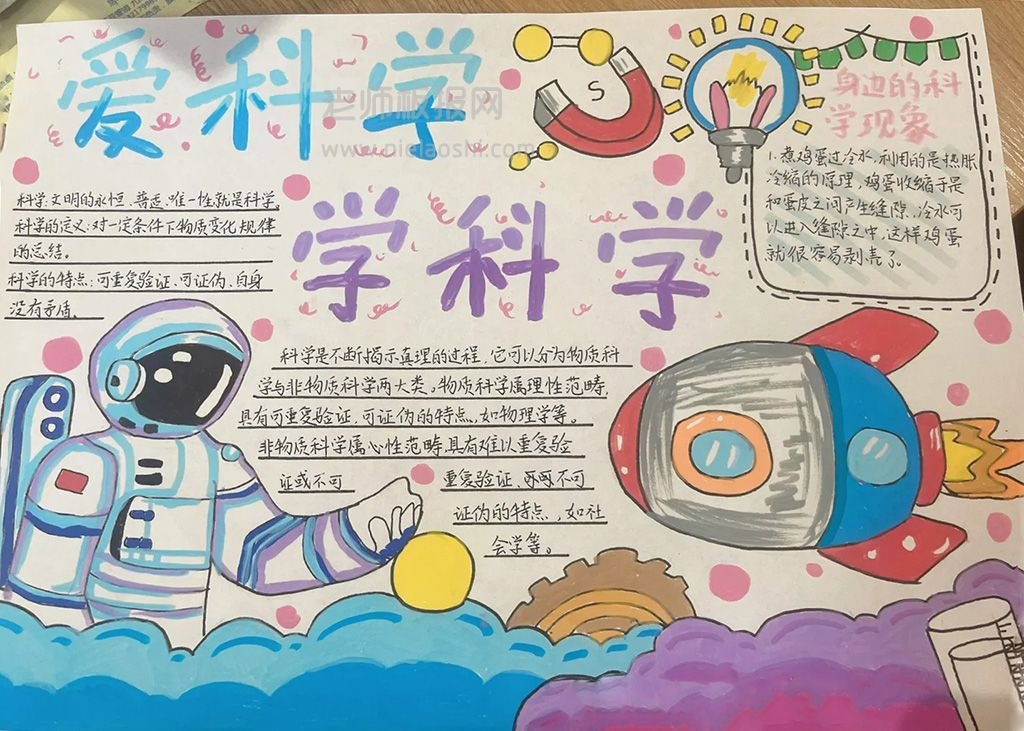 爱科学
老师板报网
www.niciaoshi.com
学科学
身边的科
学现象
1.煮鸡蛋过冷水,利用的是热胀
冷缩的原理,鸡蛋收缩于是
和蛋皮之间产生缝隙,冷水可
以进入缝隙之中,这样鸡蛋
就很容易剥壳了。
S
科学文明的永恒、普适、唯一性就是科学,
科学的定义:对一定条件下物质变化规律
的总结。
科学的特点:可重复验证、可证伪、自身
没有矛盾。
科学是不断揭示真理的过程,它可以分为物质科
学与非物质科学两大类。物质科学属理性范畴,
具有可重复验证,可证伪的特点,如物理学等。
非物质科学属心性范畴,具有难以重复验
证或不可 重复验证、不可
证伪的特点,如社
会学等。